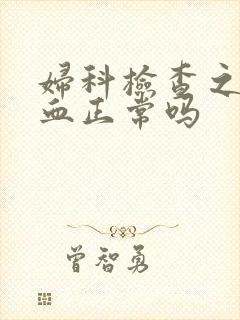 婦科檢查之
血正常吗
曾智勇